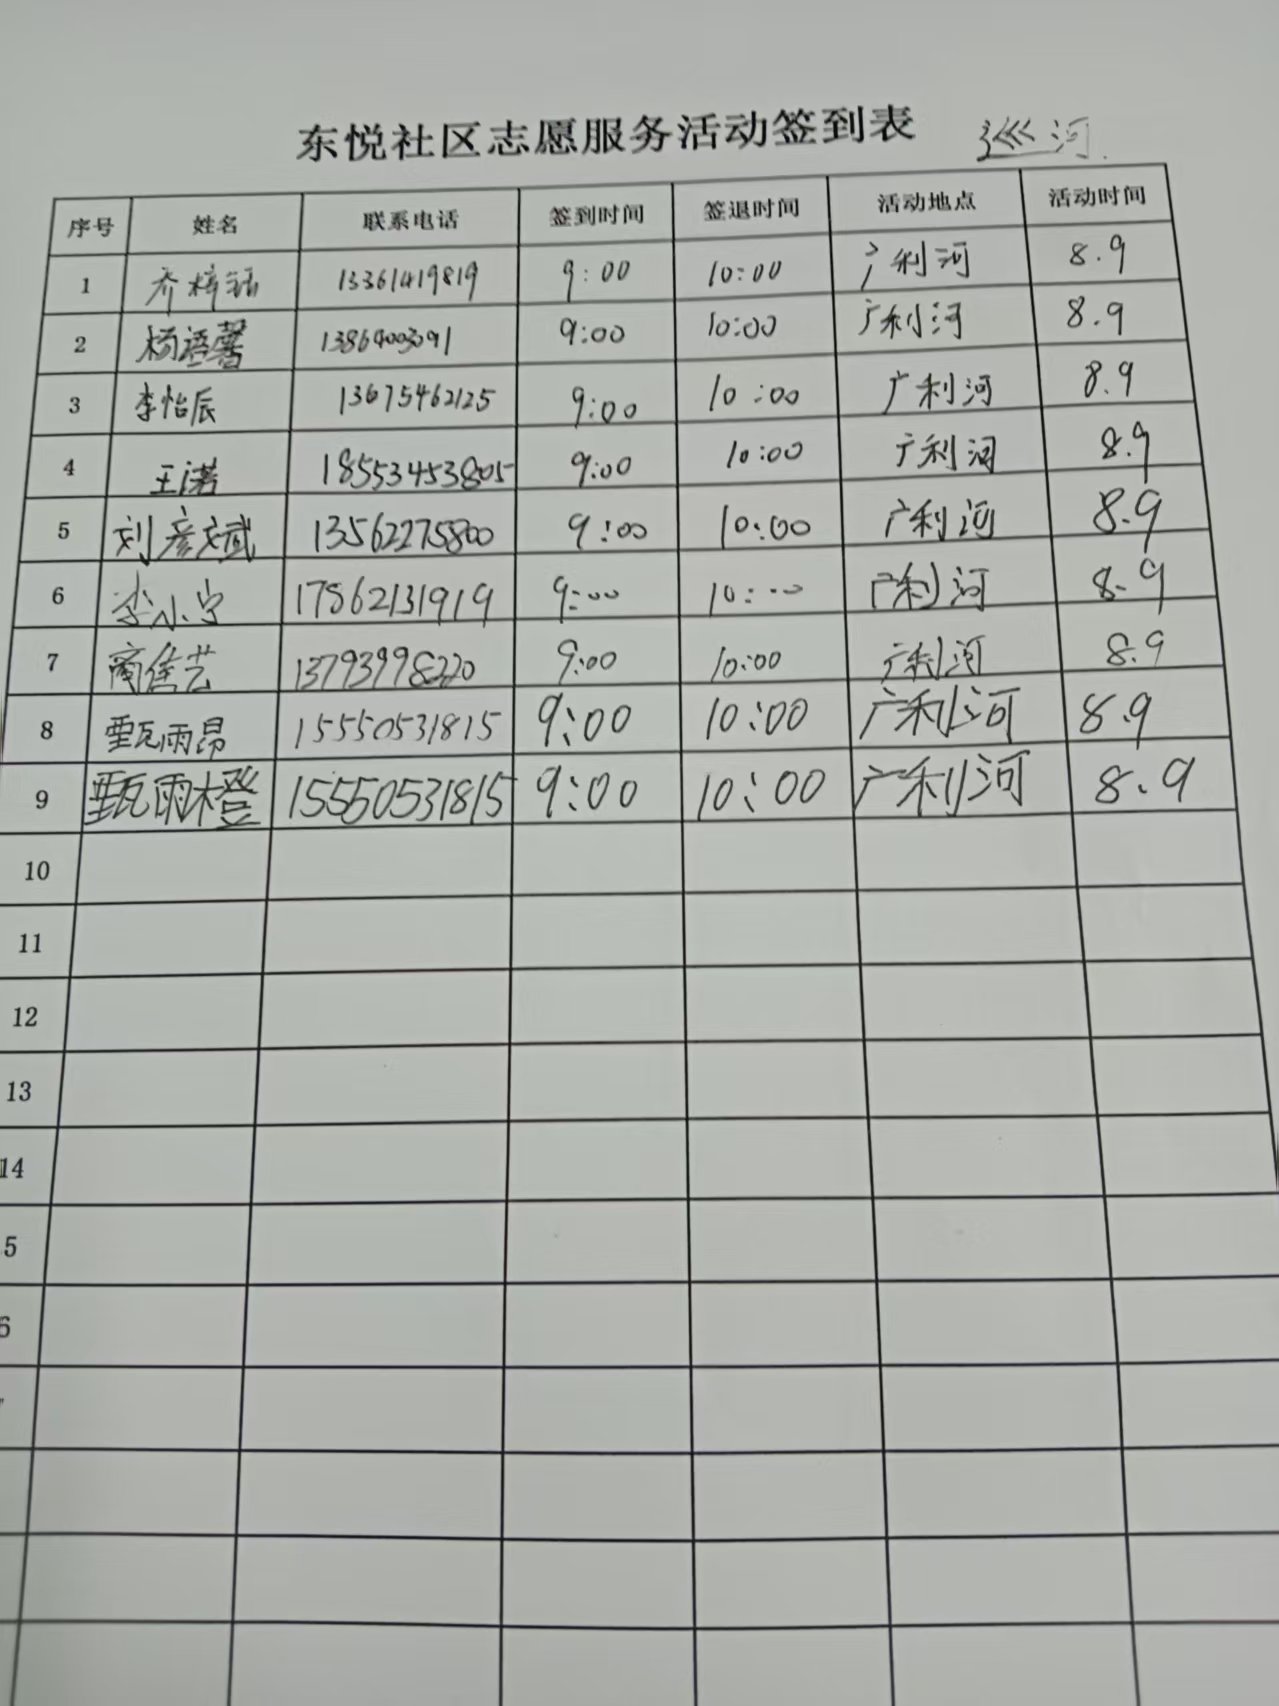 东悦社区志愿服务活动签到表 巡河
序号 姓名 联系电话 签到时间 签退时间 活动地点 活动时间
1 乔梓涵 13361419819 9:00 10:00 广利河 8.9
2 杨语馨 13864003091 9:00 10:00 广利河 8.9
3 李怡辰 13675462125 9:00 10:00 广利河 8.9
4 王诺 18553453805 9:00 10:00 广利河 8.9
5 刘彦斌 13562275800 9:00 10:00 广利河 8.9
6 李小宁 17862131919 9:00 10:00 广利河 8.9
7 商佳艺 13793998220 9:00 10:00 广利河 8.9
8 甄雨昂 15550531815 9:00 10:00 广利河 8.9
9 甄雨橙 15550531815 9:00 10:00 广利河 8.9
10
11
12
13
14
5
6